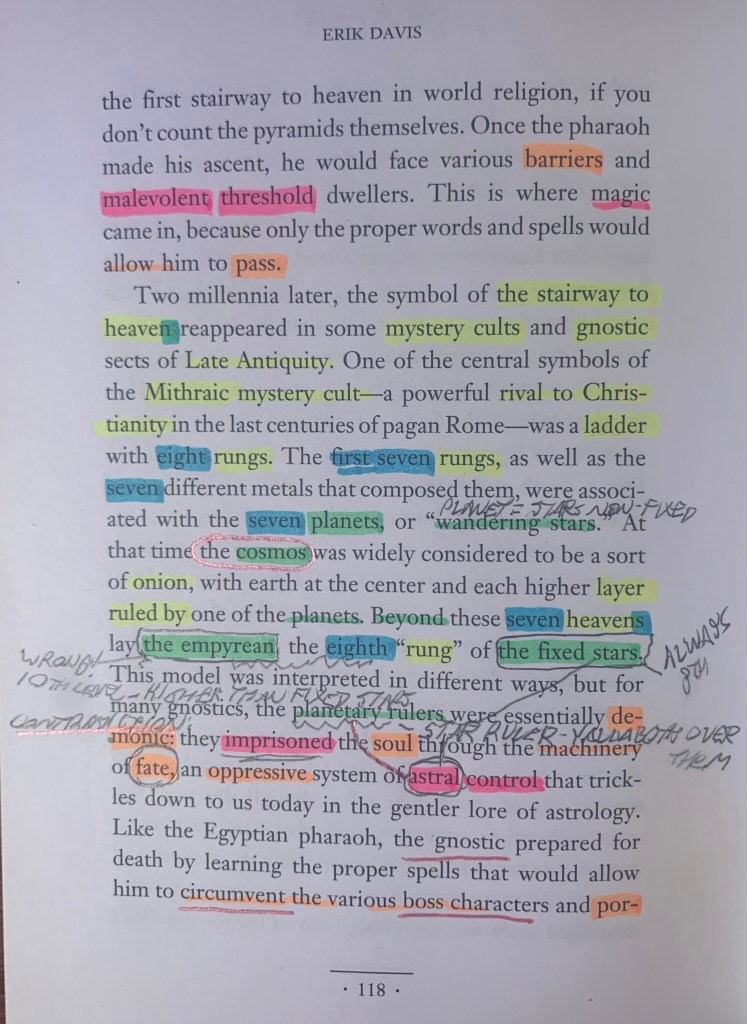 ERIK DAVIS
the first stairway to heaven in world religion, if you
don't count the pyramids themselves. Once the pharaoh
made his ascent, he would face various barriers and
malevolent threshold dwellers. This is where magic
came in, because only the proper words and spells would
allow him to pass.
Two millennia later, the symbol of the stairway to
heaven reappeared in some mystery cults and gnostic
sects of Late Antiquity. One of the central symbols of
the Mithraic mystery cult—a powerful rival to Chris-
tianity in the last centuries of pagan Rome—was a ladder
with eight rungs. The first seven rungs, as well as the
seven different metals that composed them, were associ-
PLANET = STARS NON-FIXED
ated with the seven planets, or “wandering stars.” At
that time the cosmos was widely considered to be a sort
of onion, with earth at the center and each higher layer
ruled by one of the planets. Beyond these seven heavens
lay the empyrean, the eighth “rung” of the fixed stars.
ALWAYS
8TH
WRONG!
This model was interpreted in different ways, but for
10TH LEVEL - HIGHER THAN FIXED STARS
many gnostics, the planetary rulers were essentially de-
CONTRADICTION:
STAR RULER - YALDABOTH OVER
THEM
monic: they imprisoned the soul through the machinery
of fate, an oppressive system of astral control that trick-
les down to us today in the gentler lore of astrology.
Like the Egyptian pharaoh, the gnostic prepared for
death by learning the proper spells that would allow
him to circumvent the various boss characters and por-
· 118 ·